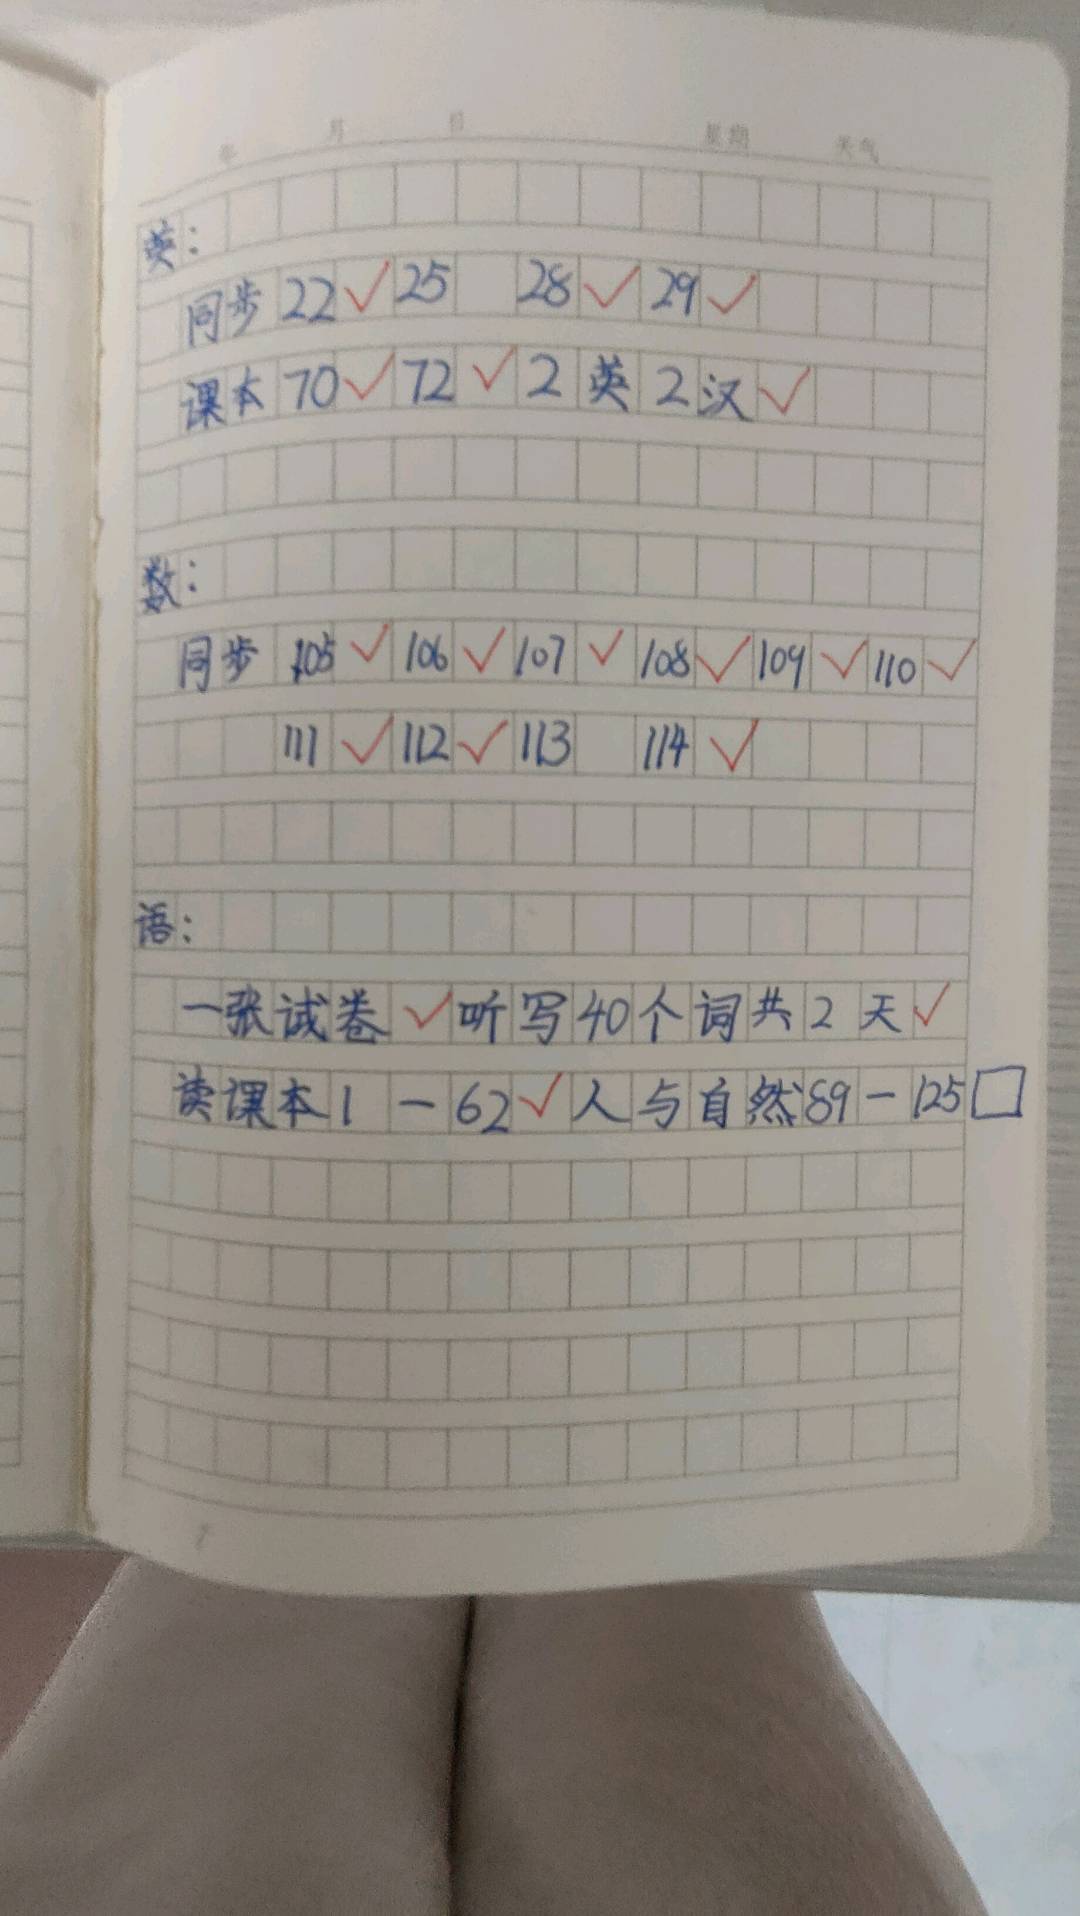 年 月 日 星期 天气
英：
同步 22 ✓ 25 28 ✓ 29 ✓
课本 70 ✓ 72 ✓ 2 英 2 汉 ✓
数：
同步 105 ✓ 106 ✓ 107 ✓ 108 ✓ 109 ✓ 110 ✓
111 ✓ 112 ✓ 113 114 ✓
语：
一张试卷 ✓ 听写40个词共2天 ✓
读课本1一62 ✓ 人与自然89一125 □